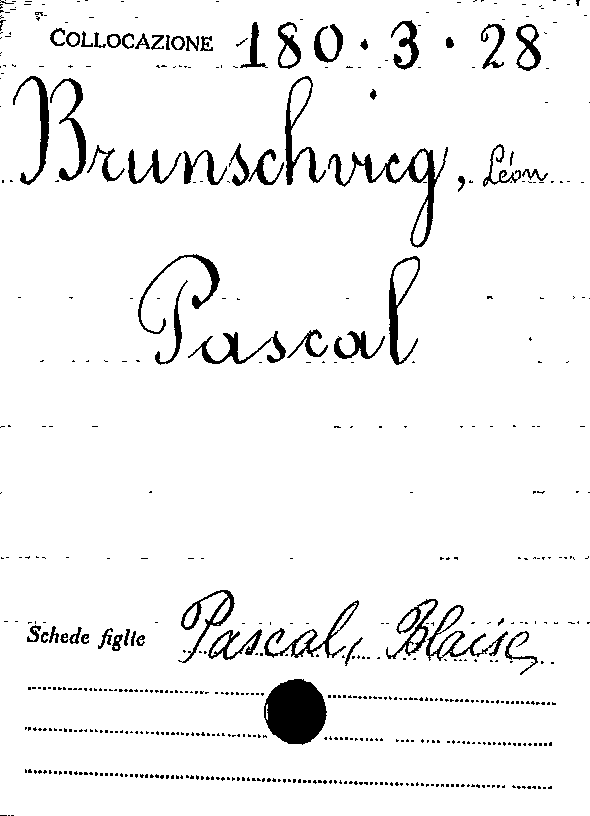 COLLOCAZIONE 180 · 3 · 28
Brunschvicg, Léon
Pascal
Schede figlie Pascal, Blaise